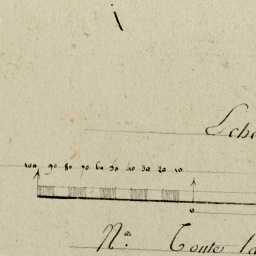 100 90 80 70 60 50 40 30 20 10
0
N.º Toute la